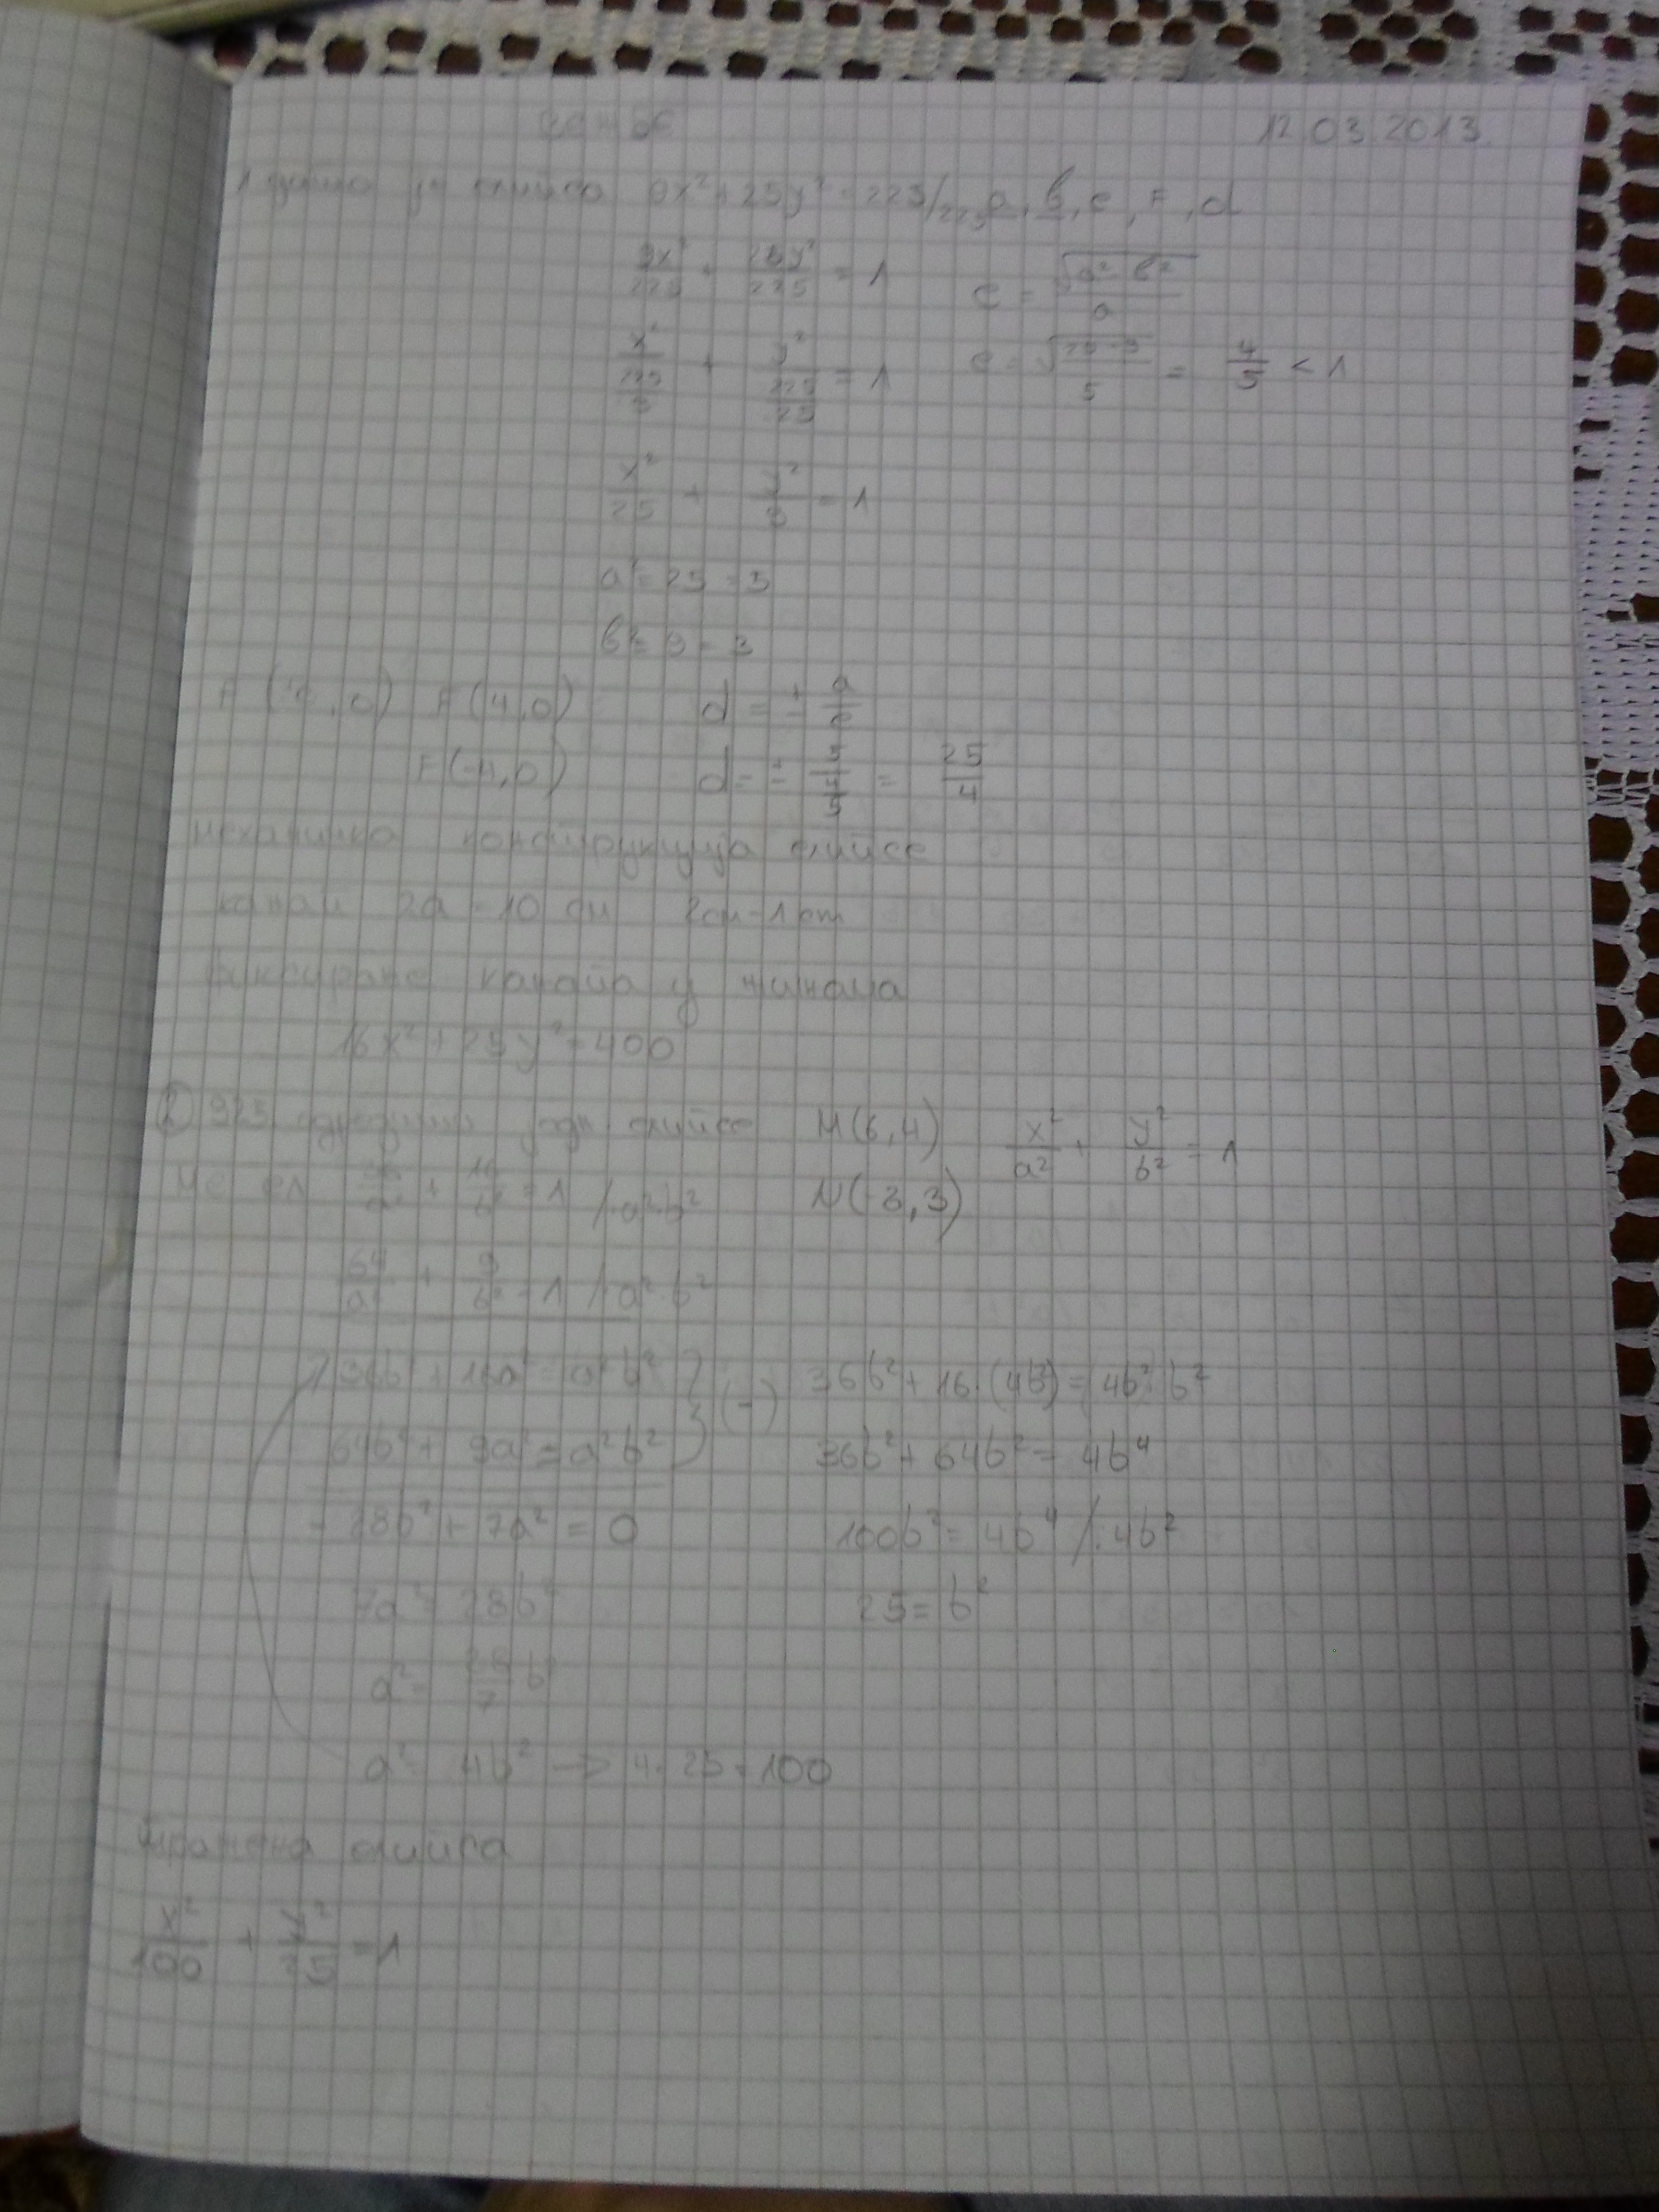 12.03.2013
1 дата је елипса 9x²+25y²=225/:225 a, b, e, F, d
9x²/225 + 25y²/225 = 1   e = √(a²-b²)/a
x²/(225/9) + y²/(225/25) = 1   e = √(25-9)/5 = 4/5 < 1
x²/25 + y²/9 = 1
a²=25=5
b²=9=3
F( ,0) F(4,0)   d = ± a/e
F(-4,0)   d = ± 5/(4/5) = 25/4
механичка конструкција елипсе
канап 2a=10 cm 2cm-1cm
фиксиране канапа у жижама
16x²+25y²=400
② 925 одредити једн. елипсе M(6,4) x²/a² + y²/b² = 1
M∈ел 36/a² + 16/b² = 1 /·a²b²   N(-8,3)
64/a² + 9/b² = 1 /·a²·b²
36b²+16a²=a²b² } (-)   36b²+16·(4b²)=(4b²)·b²
64b²+9a²=a²b²   36b²+64b²=4b⁴
-28b²+7a²=0   100b²=4b⁴ /:4b²
7a²=28b²   25=b²
a²= 28/7 b²
a²=4b² → 4·25=100
тражена елипса
x²/100 + y²/25 = 1